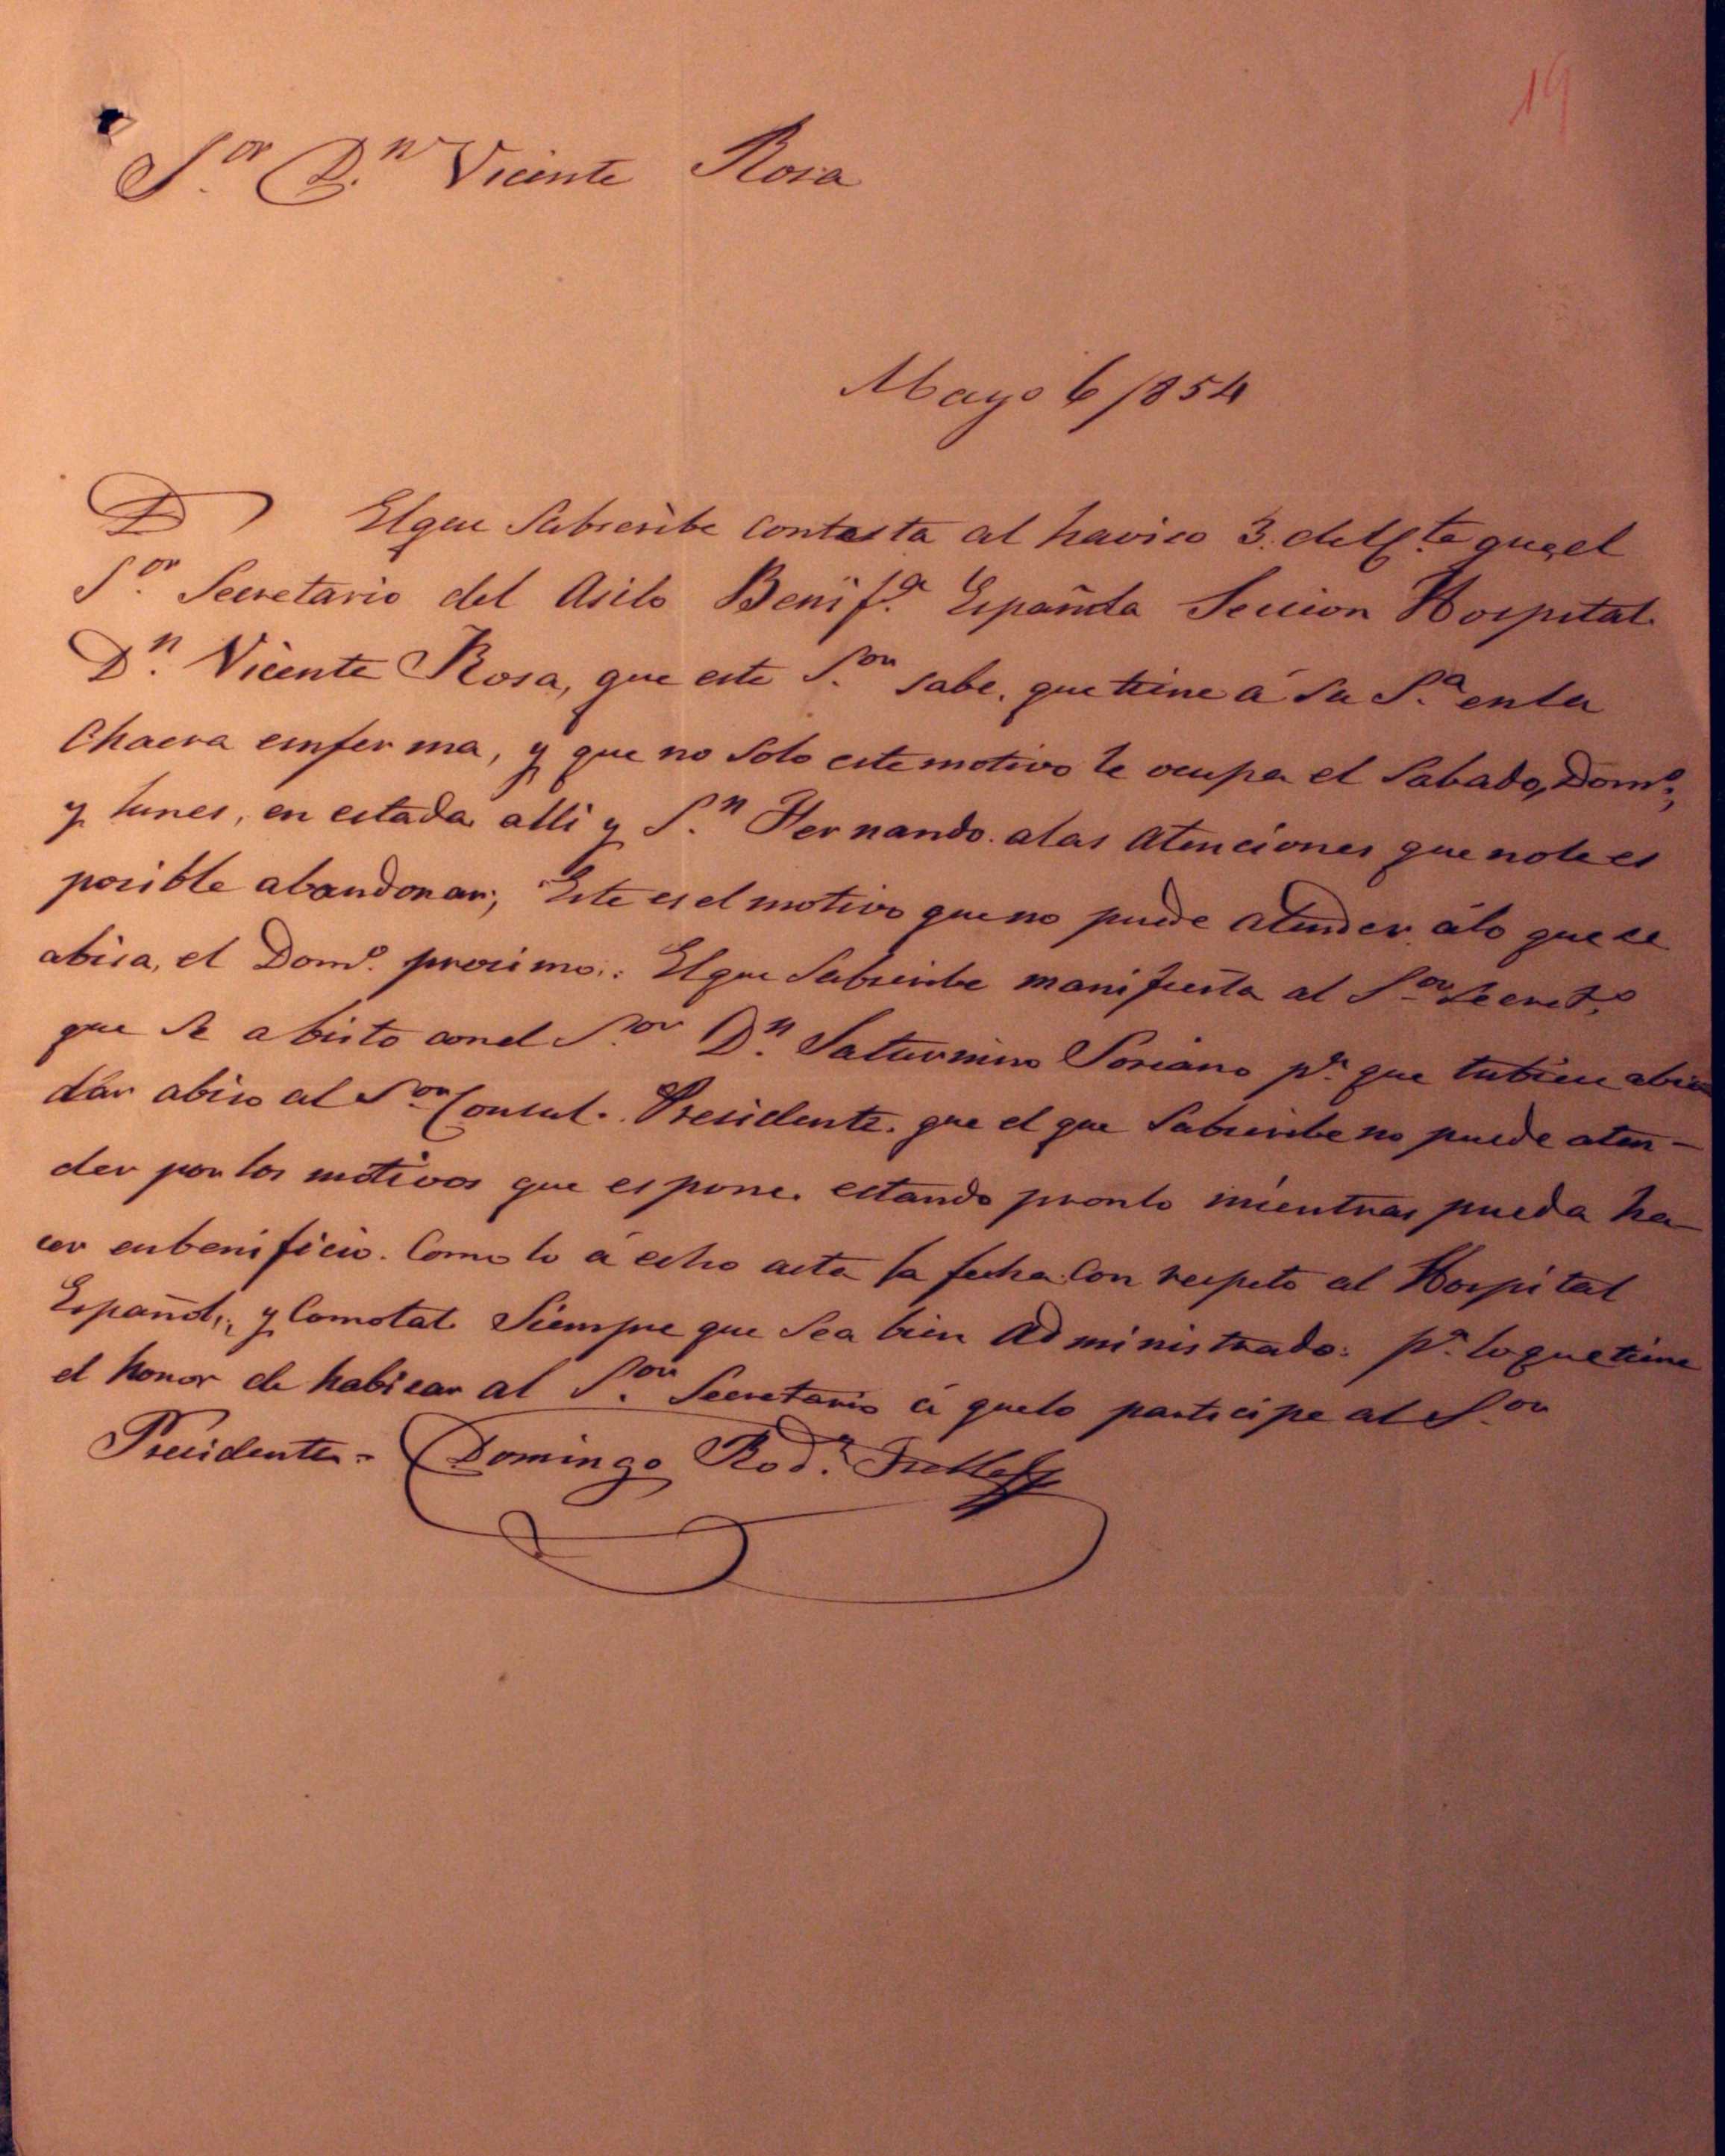 19
S.or D.n Vicente Rosa
Mayo 6/854
El que Subscribe contesta al havico 3. del que el
S.or Secretario del Asilo Benif.a Española Seccion Hospital.
D.n Vicente Rosa, que este S.or sabe. que tiene á su S.a en la
Chacra emferma, y que no solo este motivo le ocupa el Sabado, Dom.o,
y lunes, en estada alli y S.n Fernando. a las atenciones que no le es
posible abandonar; Este es el motivo que no puede atender álo que se
abisa, el Dom.o procimo.: El que Subscribe manifiesta al S.or Secret.o
que se abisto con el S.or D.n Saturnino Soriano p.a que tubiese abien
dár abiso al S.or Consul. Presidente. que el que Subscribe no puede aten-
der por los motivos que espone. estando pronto mientras pueda ha-
cer en benificio. Como lo á echo asta la fecha. Con respeto al Hospital
Español, y Comotal. Siempre que sea bien administrado: p.a lo que tiene
el honor de habisar al S.or Secretario á que lo participe al S.or
Presidente= Domingo Rod.z